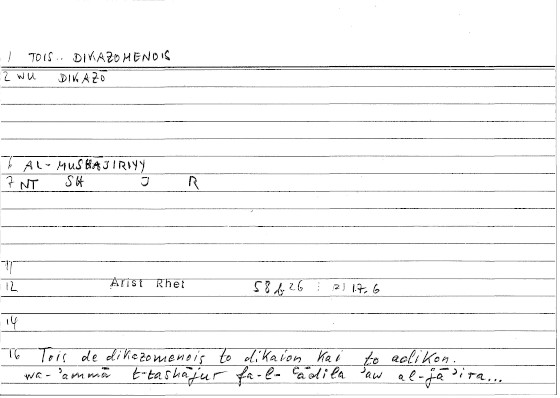 1 TOIS.. DIKAZOMENOIS
2 WU DIKAZŌ
6 AL-MUSHĀJIRIYY
7 NT SH J R
11
12 Arist Rhet 58 b 26 : 17.6
14
16 Tois de dikazomenois to dikaion kai to adikon.
wa-'ammā t-tashājur fa-l-'ādila 'aw al-jā'ira...